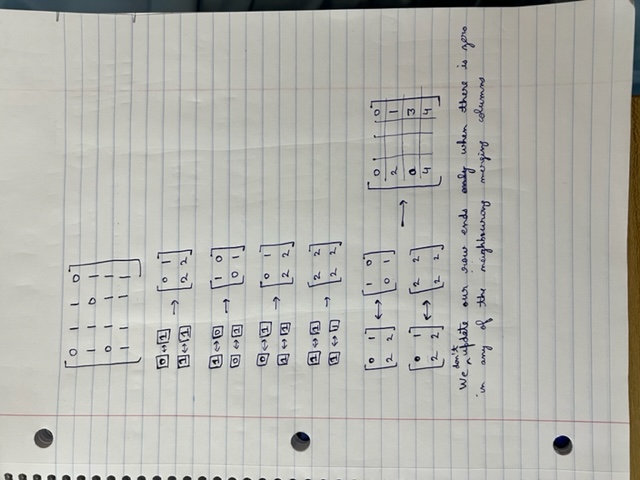 0 1 1 0
1 1 0 1
0 1 1 1
1 1 1 1
0 ↔ 1
1 ↔ 1
→
0 1
2 2
1 ↔ 0
0 ↔ 1
→
1 0
0 1
0 ↔ 1
1 ↔ 1
→
0 1
2 2
1 ↔ 1
1 ↔ 1
→
2 2
2 2
0 1
2 2
↔
1 0
0 1
0 1
2 2
↔
2 2
2 2
→
0 0
2 1
0 3
4 4
We don't update our row ends only when there is zero
in any of the neighbouring merging columns